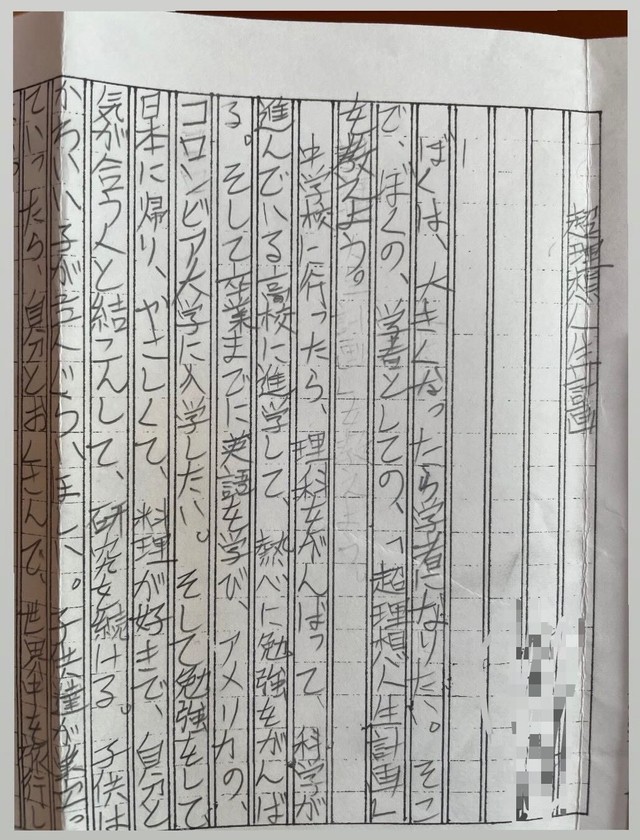 超理想人生計画
ぼくは、大きくなったら学者になりたい。そこ
で、ぼくの、学者としての、「超理想人生計画」
を教えよう。
中学校に行ったら、理科をがんばって、科学が
進んでいる高校に進学して、熱心に勉強をがんば
る。そして卒業までに英語を学び、アメリカの、
コロンビア大学に入学したい。そして勉強をして、
日本に帰り、やさしくて、料理が好きで、自分と
気が合う人と結こんして、研究を続ける。子供は
かわいい子が三人ぐらい、ほしい。子供達が
ていったら、自分とおくさんで、世界中を旅行し